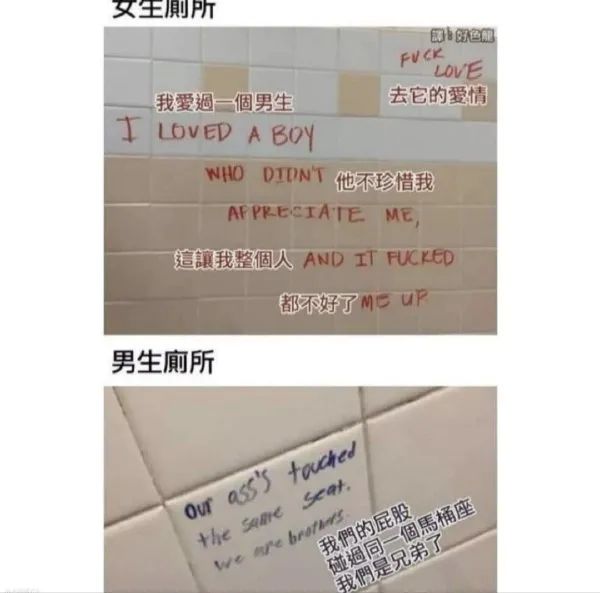 女生廁所
譯：好色龍
FUCK
LOVE
去它的愛情
我愛過一個男生
I LOVED A BOY
WHO DIDN'T 他不珍惜我
APPRECIATE ME,
這讓我整個人 AND IT FUCKED
都不好了 ME UP
男生廁所
Our ass's touched
the same seat.
we are brothers.
我們的屁股
碰過同一個馬桶座
我們是兄弟了